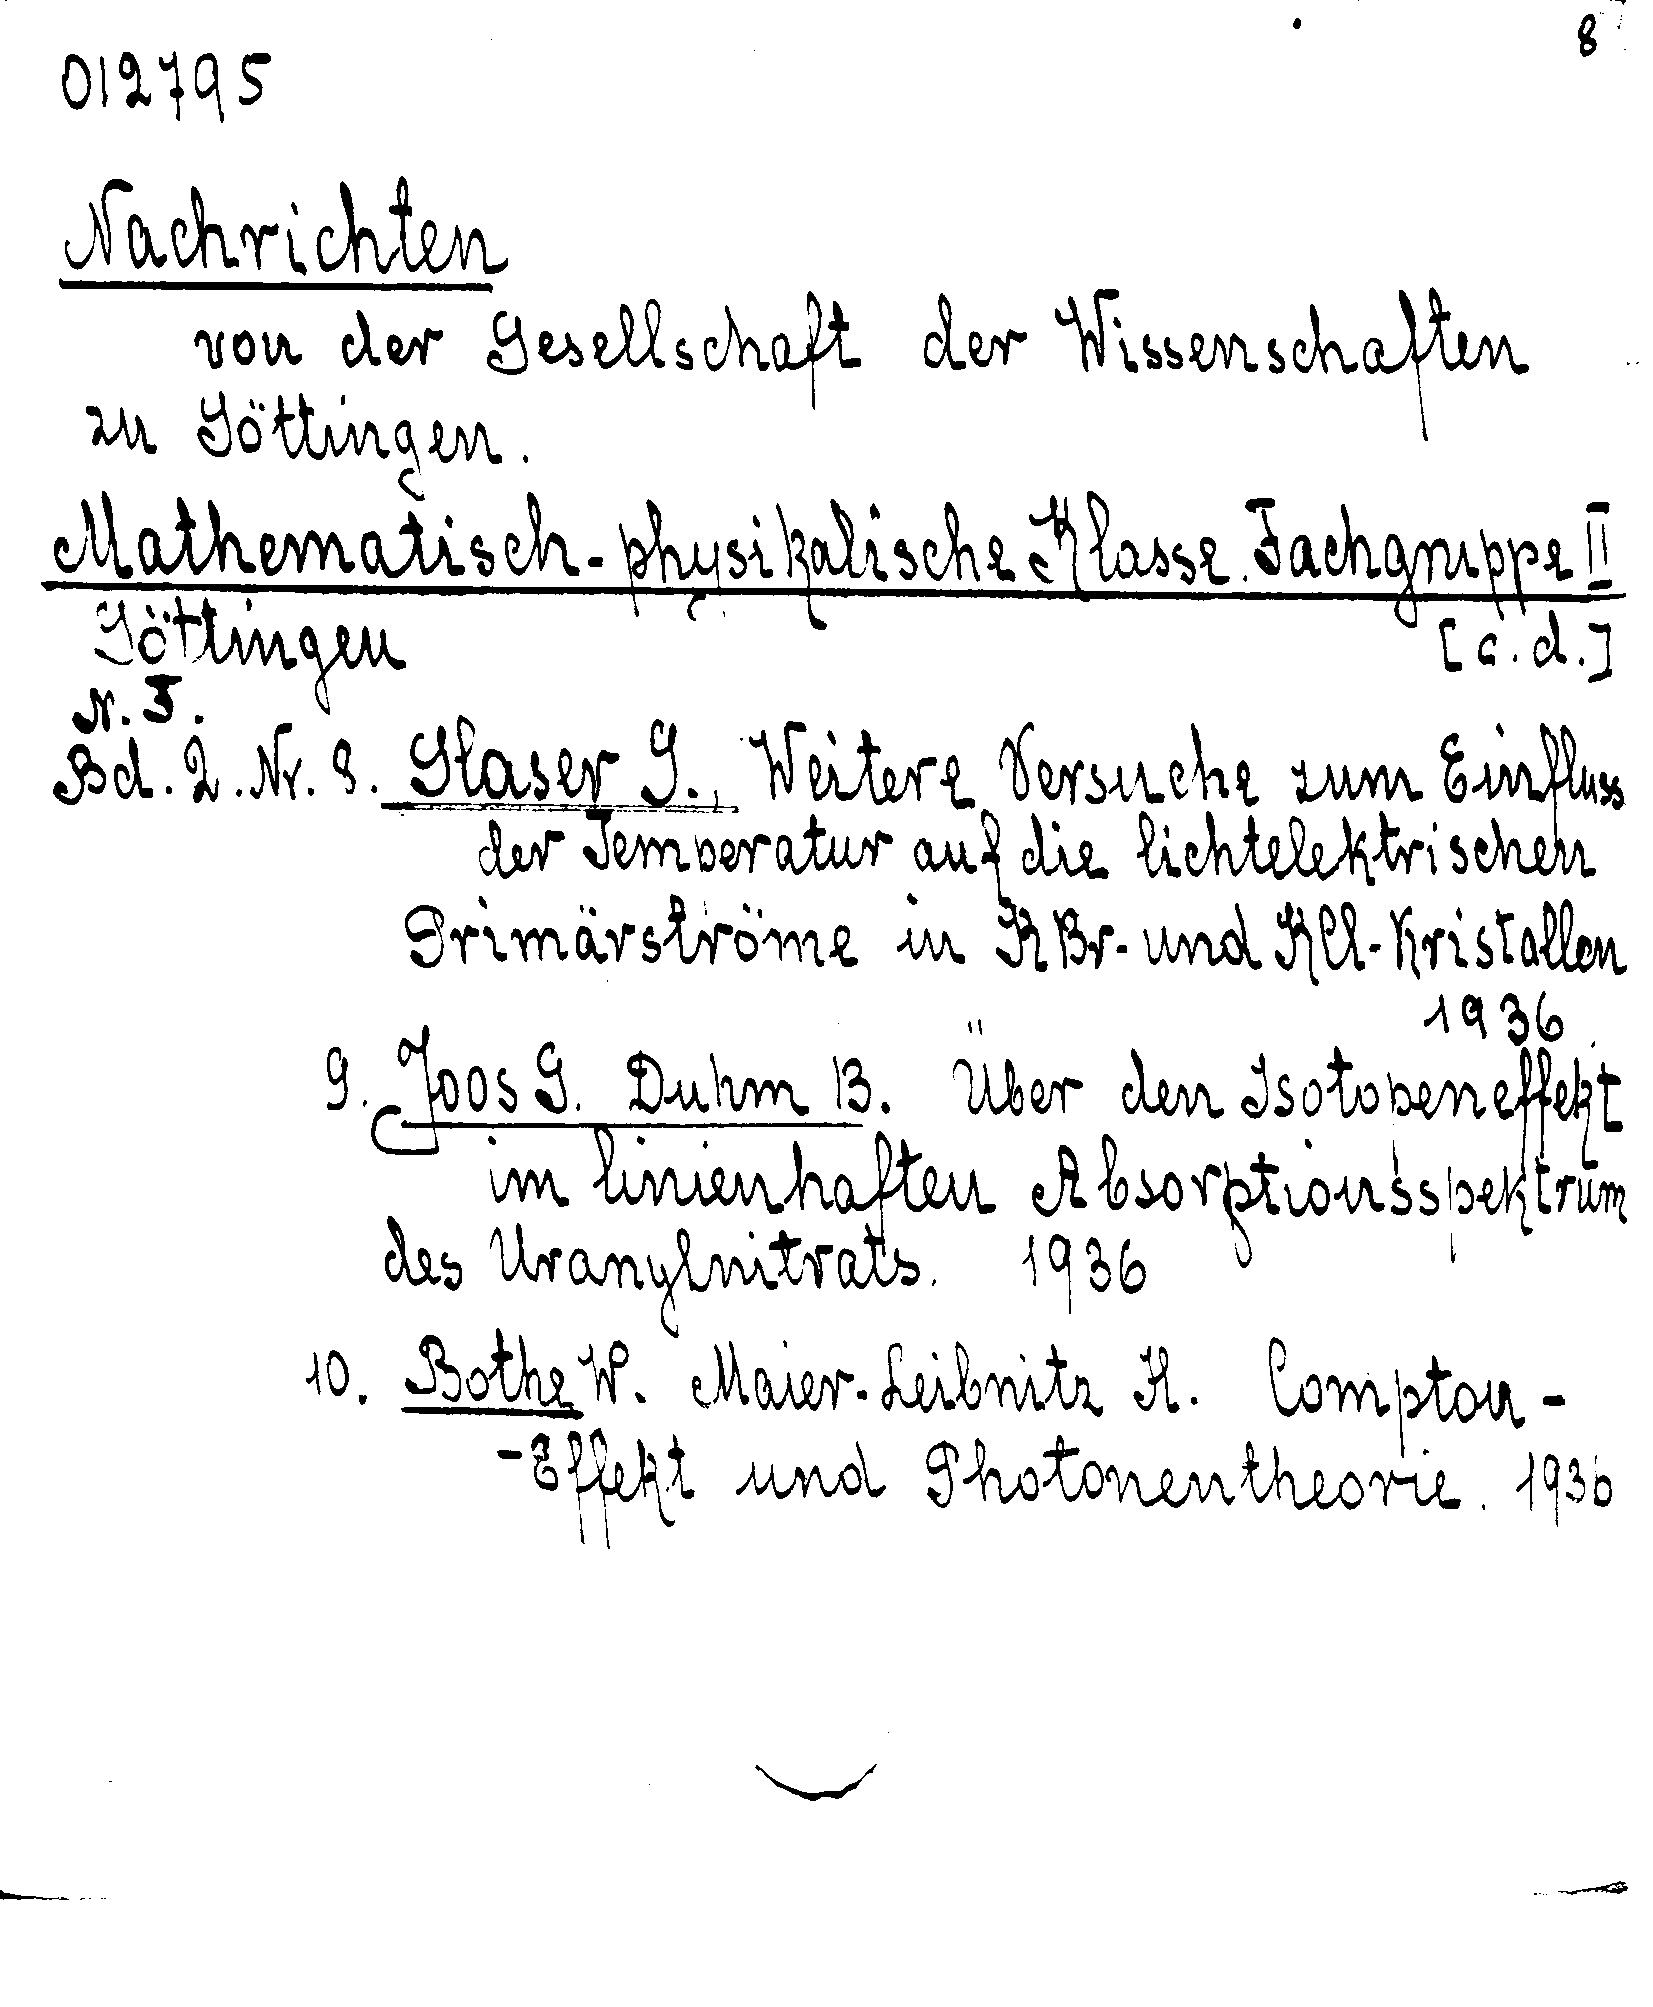 8
012795
Nachrichten
von der Gesellschaft der Wissenschaften
zu Göttingen.
Mathematisch-physikalische Klasse. Fachgruppe II
Göttingen [c.d.]
N. F.
Bd. 2. Nr. 8. Glaser G., Weitere Versuche zum Einfluss
der Temperatur auf die lichtelektrischen
Primärströme in KBr- und KCl-Kristallen
1936
9. Joos G. Duhm B. Über den Isotopeneffekt
im linienhaften Absorptionsspektrum
des Uranylnitrats. 1936
10. Bothe W. Maier-Leibnitz H. Compton-
-Effekt und Photonentheorie. 1936